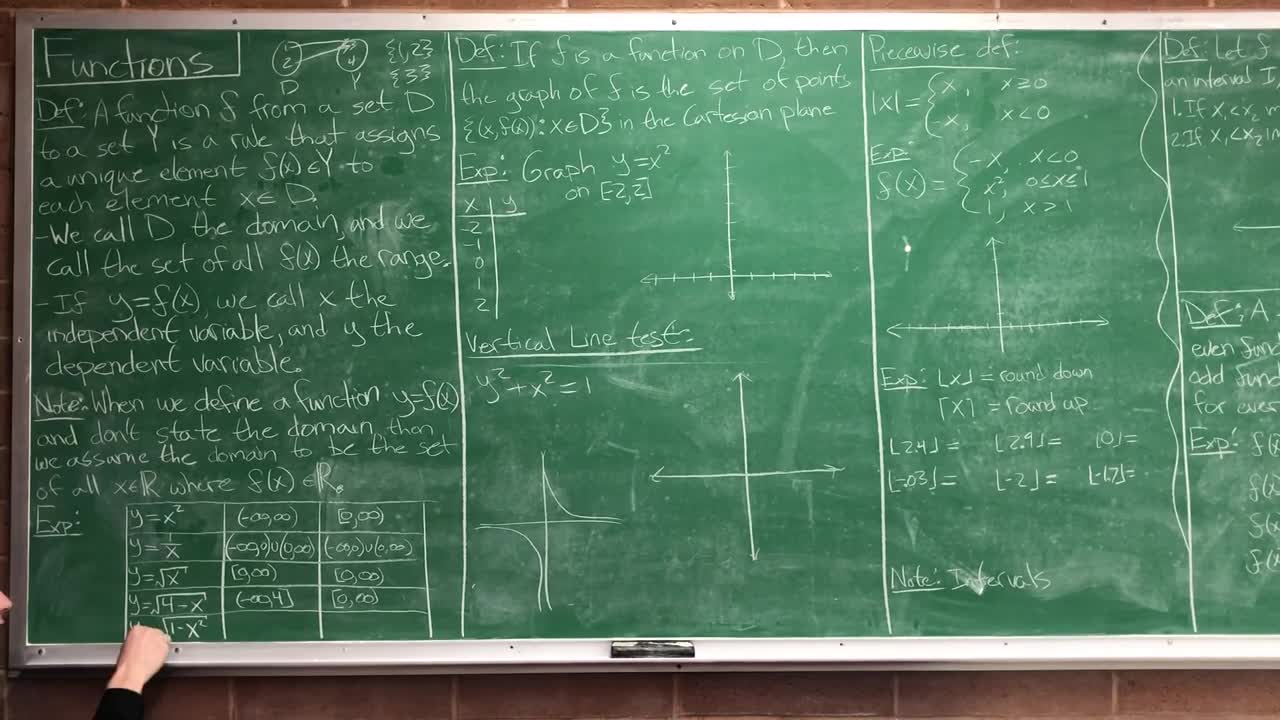 Functions
1
2
3
4
D
Y
{1,2}
{3}
Def: A function f from a set D
to a set Y is a rule that assigns
a unique element f(x)∈Y to
each element x∈D.
-We call D the domain, and we
call the set of all f(x) the range.
-If y=f(x), we call x the
independent variable, and y the
dependent variable.
Note: When we define a function y=f(x)
and don't state the domain, then
we assume the domain to be the set
of all x∈ℝ where f(x)∈ℝ.
Exp:
y=x² (-∞,∞) [0,∞)
y=1/x (-∞,0)∪(0,∞) (-∞,0)∪(0,∞)
y=√x [0,∞) [0,∞)
y=√4-x (-∞,4] [0,∞)
√1-x²
Def: If f is a function on D, then
the graph of f is the set of points
{(x,f(x)): x∈D} in the Cartesian plane
Exp: Graph y=x²
on [-2,2]
x y
-2
-1
0
1
2
Vertical Line test:
y²+x²=1
Piecewise def:
|x|={x, x≥0
x, x<0
Exp:
f(x)={-x, x<0
x², 0≤x≤1
1, x>1
Exp: ⌊x⌋=round down
⌈x⌉=round up
⌊2.4⌋= ⌊2.9⌋= ⌊0⌋=
⌊-0.3⌋= ⌊-2⌋= ⌊-1.7⌋=
Note: Intervals
Def: Let f
an interval I
1. If x₁<x₂
2. If x₁<x₂
Def: A
even fun
odd fun
for ever
Exp: f(x
f(x
f(x
f(x